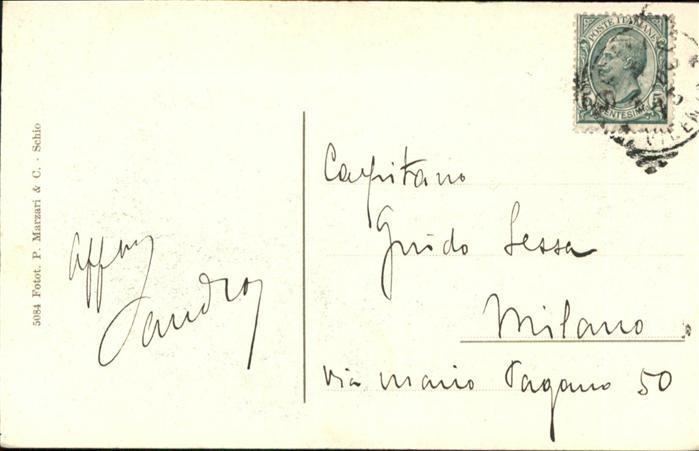 5084 Fotot. P. Marzari & C. - Schio
Aff.mo
Sandro
POSTE ITALIANE
5 CENTESIMI 5
Capitano
Guido Sessa
Milano
via Mario Pagano 50